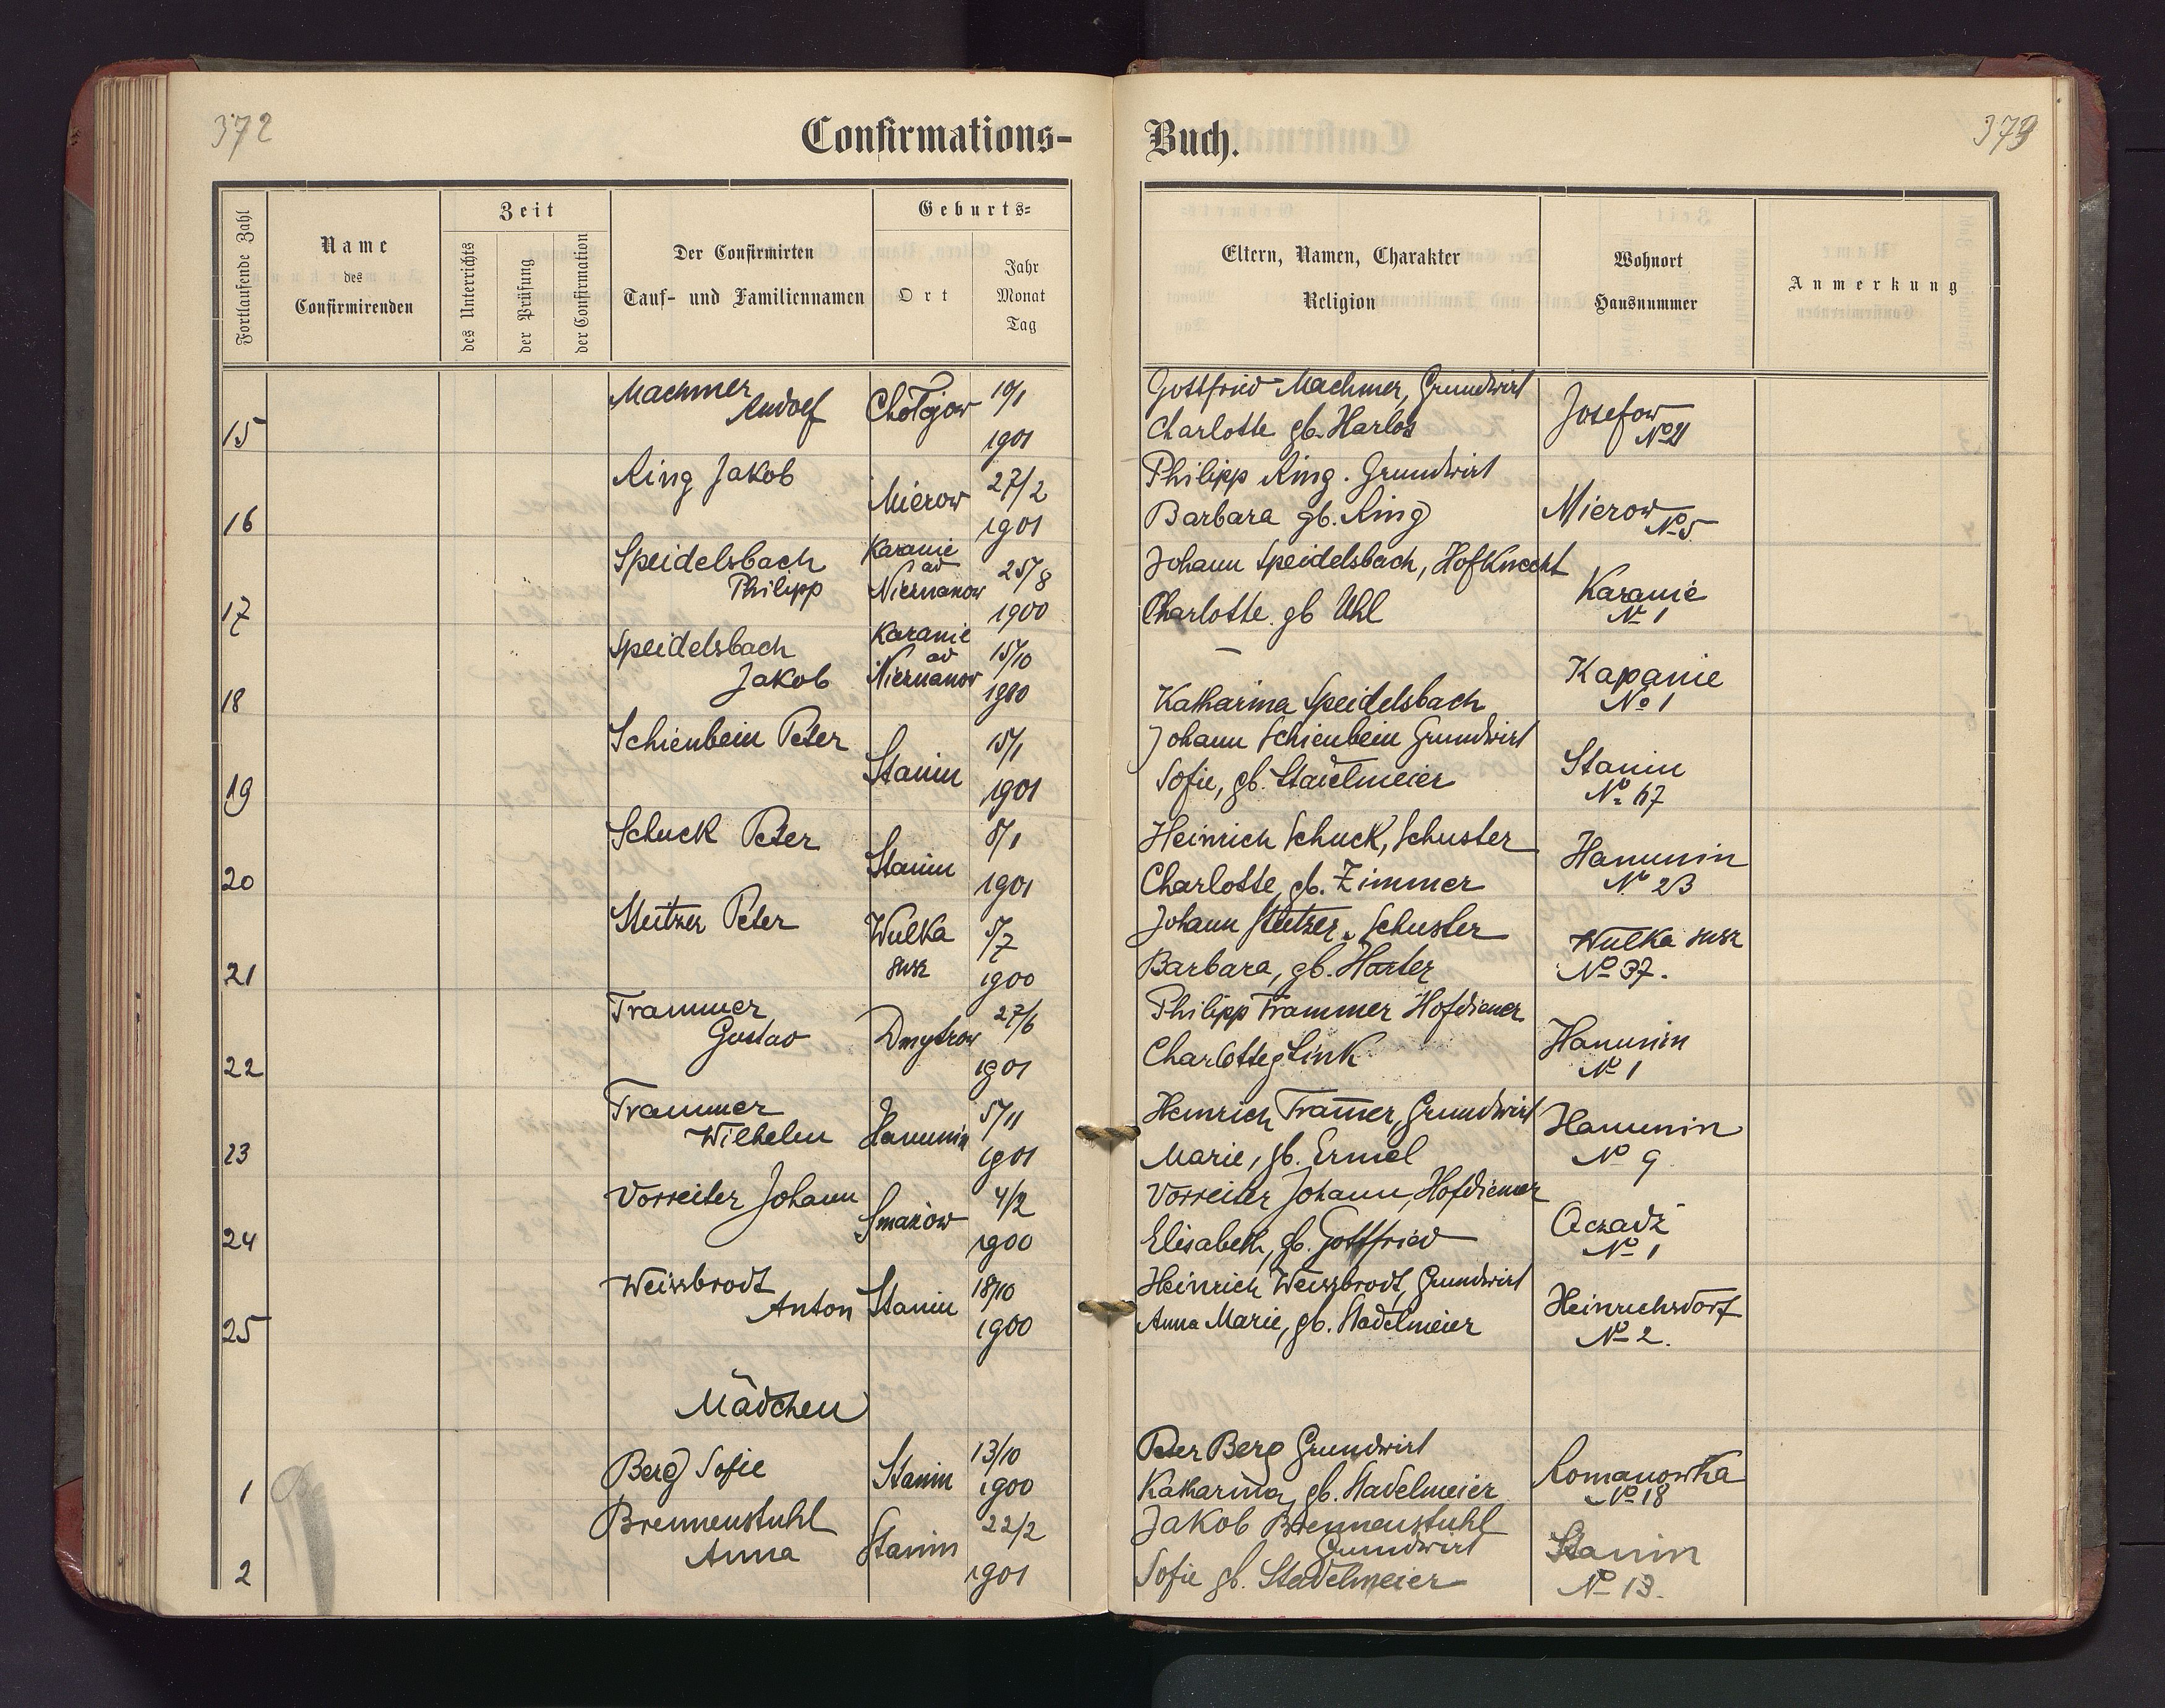 372
Confirmations-
Buch.
379
Fortlaufende Zahl
Name
des
Confirmirenden
Zeit
des Unterrichts
der Prüfung
der Confirmation
Der Confirmirten
Tauf- und Familiennamen
Geburts-
Ort
Jahr
Monat
Tag
Eltern, Namen, Charakter
Religion
Wohnort
Hausnummer
Anmerkung
15
Machmer
Rudolf
Chołojow
10/1
1901
Gottfried Machmer, Grundwirt
Charlotte gb. Harlos
Josefow
No 21
16
Ring Jakob
Mierow
27/2
1901
Philipp Ring. Grundwirt
Barbara gb. Ring
Mierow
No 5
17
Speidelsbach
Philipp
Karanie
ad
25/8
1900
Johann Speidelsbach, Hofknecht
Charlotte gb Uhl
Karanie
No 1
18
Speidelsbach
Jakob
Karanie
ad
15/10
1900
—
Katharina Speidelsbach
Kapanie
No 1
19
Schienbein Peter
Stanin
15/1
1901
Johann Schienbein Grundwirt
Sofie, gb. Stadelmeier
Stanin
No 67
20
Schuck Peter
Stanin
8/1
1901
Heinrich Schuck, Schuster
Charlotte, gb. Zimmer
Hanunin
No 23
21
Steitzer Peter
Wulka
susz
5/7
1900
Johann Steitzer, Schuster
Barbara, gb. Harter
Wulka susz
No 37.
22
Trammer
Gustav
Dmytrow
27/6
1901
Philipp Trammer Hofdiener
Charlotte g Link
Hanunin
No 1
23
Trammer
Wilhelm
Hanunin
5/11
1901
Heinrich Tram̄er, Grundwirt
Marie, gb. Ermel
Hanunin
No 9
24
Vorreiter Johann
Smarzow
4/2
1900
Vorreiter Johann, Hofdiener
Elisabeth, gb. Gottfried
No 1
25
Weissbrodt
Anton
Stanin
18/10
1900
Heinrich Weissbrodt, Grundwirt
Anna Marie, gb. Stadelmeier
Heinrichsdorf
No 2.
Mädchen
1
Berg Sofie
Stanin
13/10
1900
Peter Berg Grundwirt
Katharina, gb. Stadelmeier
Romanowka
No 18
2
Brennenstuhl
Anna
Stanin
22/2
1901
Jakob Brennenstuhl
Grundwirt
Sofie gb. Stadelmeier
Stanin
No 13.